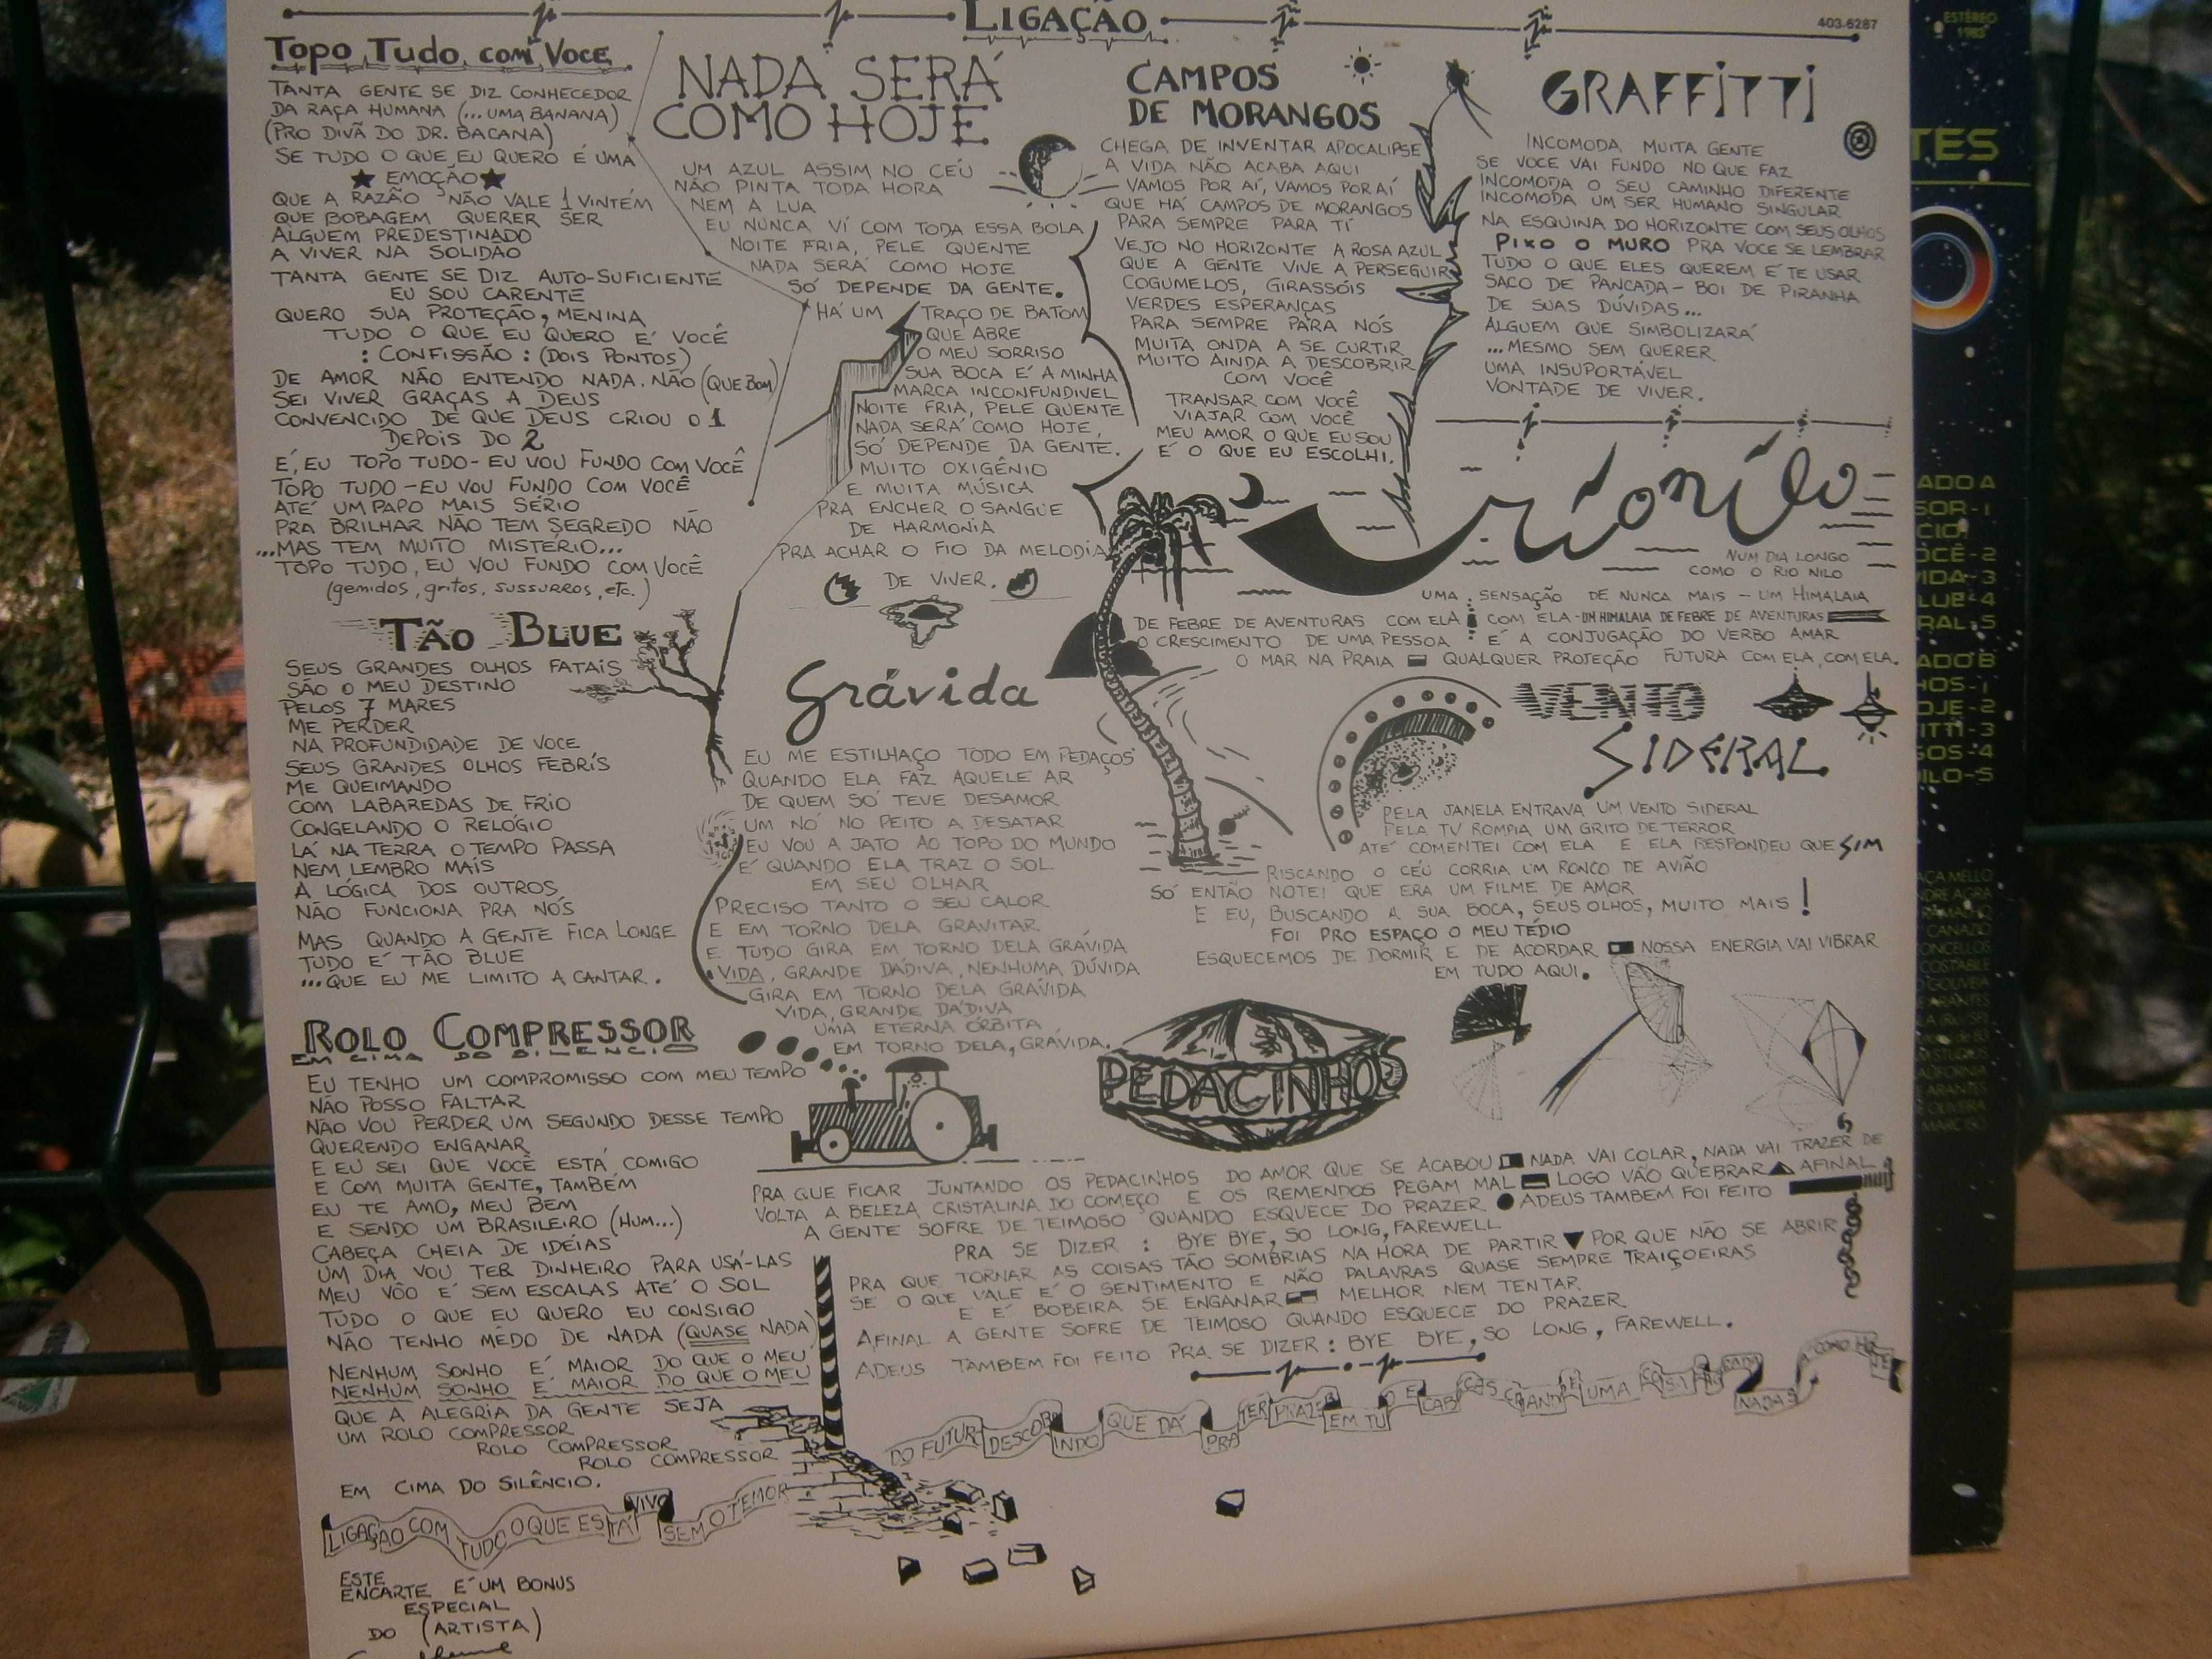 LIGAÇÃO
403.6287
TOPO TUDO COM VOCE
TANTA GENTE SE DIZ CONHECEDOR
DA RAÇA HUMANA (... UMA BANANA)
(PRO DIVÃ DO DR. BACANA)
SE TUDO O QUE EU QUERO É UMA
★ EMOÇÃO ★
QUE A RAZÃO NÃO VALE 1 VINTÉM
QUE BOBAGEM QUERER SER
ALGUEM PREDESTINADO
A VIVER NA SOLIDÃO
TANTA GENTE SE DIZ AUTO-SUFICIENTE
EU SOU CARENTE
QUERO SUA PROTEÇÃO, MENINA
TUDO O QUE EU QUERO É VOCÊ
: CONFISSÃO : (DOIS PONTOS)
DE AMOR NÃO ENTENDO NADA. NÃO (QUE BOM)
SEI VIVER GRAÇAS A DEUS
CONVENCIDO DE QUE DEUS CRIOU O 1
DEPOIS DO 2
É, EU TOPO TUDO - EU VOU FUNDO COM VOCÊ
TOPO TUDO - EU VOU FUNDO COM VOCÊ
ATÉ UM PAPO MAIS SÉRIO
PRA BRILHAR NÃO TEM SEGREDO NÃO
...MAS TEM MUITO MISTÉRIO...
TOPO TUDO, EU VOU FUNDO COM VOCÊ
(gemidos, gritos, sussurros, etc.)
TÃO BLUE
SEUS GRANDES OLHOS FATAIS
SÃO O MEU DESTINO
PELOS 7 MARES
ME PERDER
NA PROFUNDIDADE DE VOCE
SEUS GRANDES OLHOS FEBRÍS
ME QUEIMANDO
COM LABAREDAS DE FRIO
CONGELANDO O RELÓGIO
LÁ NA TERRA O TEMPO PASSA
NEM LEMBRO MAIS
A LÓGICA DOS OUTROS
NÃO FUNCIONA PRA NÓS
MAS QUANDO A GENTE FICA LONGE
TUDO É TÃO BLUE
...QUE EU ME LIMITO A CANTAR.
ROLO COMPRESSOR
EM CIMA DO SILENCIO
EU TENHO UM COMPROMISSO COM MEU TEMPO
NÃO POSSO FALTAR
NÃO VOU PERDER UM SEGUNDO DESSE TEMPO
QUERENDO ENGANAR
E EU SEI QUE VOCÊ ESTÁ COMIGO
E COM MUITA GENTE, TAMBÉM
EU TE AMO, MEU BEM
E SENDO UM BRASILEIRO (HUM...)
CABEÇA CHEIA DE IDÉIAS
UM DIA VOU TER DINHEIRO PARA USÁ-LAS
MEU VÔO É SEM ESCALAS ATÉ O SOL
TUDO O QUE EU QUERO EU CONSIGO
NÃO TENHO MÊDO DE NADA (QUASE NADA)
NENHUM SONHO É MAIOR DO QUE O MEU
NENHUM SONHO É MAIOR DO QUE O MEU
QUE A ALEGRIA DA GENTE SEJA
UM ROLO COMPRESSOR
ROLO COMPRESSOR
ROLO COMPRESSOR
EM CIMA DO SILÊNCIO.
NADA SERÁ
COMO HOJE
UM AZUL ASSIM NO CÉU
NÃO PINTA TODA HORA
NEM A LUA
EU NUNCA VÍ COM TODA ESSA BOLA
NOITE FRIA, PELE QUENTE
NADA SERÁ COMO HOJE
SÓ DEPENDE DA GENTE.
HÁ UM TRAÇO DE BATOM
QUE ABRE
O MEU SORRISO
SUA BOCA É A MINHA
MARCA INCONFUNDIVEL
NOITE FRIA, PELE QUENTE
NADA SERÁ COMO HOJE,
SÓ DEPENDE DA GENTE.
MUITO OXIGÊNIO
E MUITA MÚSICA
PRA ENCHER O SANGUE
DE HARMONIA
PRA ACHAR O FIO DA MELODIA
DE VIVER.
Grávida
EU ME ESTILHAÇO TODO EM PEDAÇOS
QUANDO ELA FAZ AQUELE AR
DE QUEM SÓ TEVE DESAMOR
UM NÓ NO PEITO A DESATAR
EU VOU A JATO AO TOPO DO MUNDO
É QUANDO ELA TRAZ O SOL
EM SEU OLHAR
PRECISO TANTO O SEU CALOR
E EM TORNO DELA GRAVITAR
E TUDO GIRA EM TORNO DELA GRÁVIDA
VIDA, GRANDE DÁDIVA, NENHUMA DÚVIDA
GIRA EM TORNO DELA GRÁVIDA
VIDA, GRANDE DÁDIVA
UMA ETERNA ÓRBITA
EM TORNO DELA, GRÁVIDA.
CAMPOS
DE MORANGOS
CHEGA DE INVENTAR APOCALIPSE
A VIDA NÃO ACABA AQUI
VAMOS POR AÍ, VAMOS POR AÍ
QUE HÁ CAMPOS DE MORANGOS
PARA SEMPRE PARA TÍ
VEJO NO HORIZONTE A ROSA AZUL
QUE A GENTE VIVE A PERSEGUIR
COGUMELOS, GIRASSÓIS
VERDES ESPERANÇAS
PARA SEMPRE PARA NÓS
MUITA ONDA A SE CURTIR
MUITO AINDA A DESCOBRIR
COM VOCÊ
TRANSAR COM VOCÊ
VIAJAR COM VOCÊ
MEU AMOR O QUE EU SOU
É O QUE EU ESCOLHI.
GRAFFITTI
INCOMODA MUITA GENTE
SE VOCE VAI FUNDO NO QUE FAZ
INCOMODA O SEU CAMINHO DIFERENTE
INCOMODA UM SER HUMANO SINGULAR
NA ESQUINA DO HORIZONTE COM SEUS OLHOS
PIXO O MURO PRA VOCE SE LEMBRAR
TUDO O QUE ELES QUEREM É TE USAR
SACO DE PANCADA - BOI DE PIRANHA
DE SUAS DÚVIDAS...
ALGUEM QUE SIMBOLIZARÁ
...MESMO SEM QUERER
UMA INSUPORTÁVEL
VONTADE DE VIVER.
rio nilo
NUM DIA LONGO
COMO O RIO NILO
UMA SENSAÇÃO DE NUNCA MAIS - UM HIMALAIA
DE FEBRE DE AVENTURAS COM ELA COM ELA - UM HIMALAIA DE FEBRE DE AVENTURAS
O CRESCIMENTO DE UMA PESSOA É A CONJUGAÇÃO DO VERBO AMAR
O MAR NA PRAIA QUALQUER PROJEÇÃO FUTURA COM ELA, COM ELA.
VENTO
SIDERAL
PELA JANELA ENTRAVA UM VENTO SIDERAL
PELA TV ROMPIA UM GRITO DE TERROR
ATÉ COMENTEI COM ELA E ELA RESPONDEU QUE SIM
RISCANDO O CÉU CORRIA UM RONCO DE AVIÃO
SÓ ENTÃO NOTEI QUE ERA UM FILME DE AMOR
E EU, BUSCANDO A SUA BOCA, SEUS OLHOS, MUITO MAIS!
FOI PRO ESPAÇO O MEU TÉDIO
ESQUECEMOS DE DORMIR E DE ACORDAR NOSSA ENERGIA VAI VIBRAR
EM TUDO AQUI.
PEDACINHOS
PRA QUE FICAR JUNTANDO OS PEDACINHOS DO AMOR QUE SE ACABOU NADA VAI COLAR, NADA VAI TRAZER DE
VOLTA A BELEZA CRISTALINA DO COMEÇO E OS REMENDOS PEGAM MAL LOGO VÃO QUEBRAR AFINAL
A GENTE SOFRE DE TEIMOSO QUANDO ESQUECE DO PRAZER ADEUS TAMBEM FOI FEITO
PRA SE DIZER : BYE BYE, SO LONG, FAREWELL
PRA QUE TORNAR AS COISAS TÃO SOMBRIAS NA HORA DE PARTIR POR QUE NÃO SE ABRIR
SE O QUE VALE É O SENTIMENTO E NÃO PALAVRAS QUASE SEMPRE TRAIÇOEIRAS
E É BOBEIRA SE ENGANAR MELHOR NEM TENTAR
AFINAL A GENTE SOFRE DE TEIMOSO QUANDO ESQUECE DO PRAZER
ADEUS TAMBEM FOI FEITO PRA SE DIZER : BYE BYE, SO LONG, FAREWELL.
LIGAÇÃO COM TUDO O QUE ESTÁ VIVO SEM O TEMOR
DO FUTUR DESCOBRINDO QUE DÁ PRA TER PRAZER EM TU
NADA COMO
ESTE
ENCARTE É UM BONUS
ESPECIAL
DO (ARTISTA)
ESTÉREO
1983
TES
ADO A
SOR-1
CIO
OCÊ-2
VIDA-3
LUE-4
RAL-5
ADO B
HOS-1
OJE-2
ITTI-3
GOS-4
NILO-5